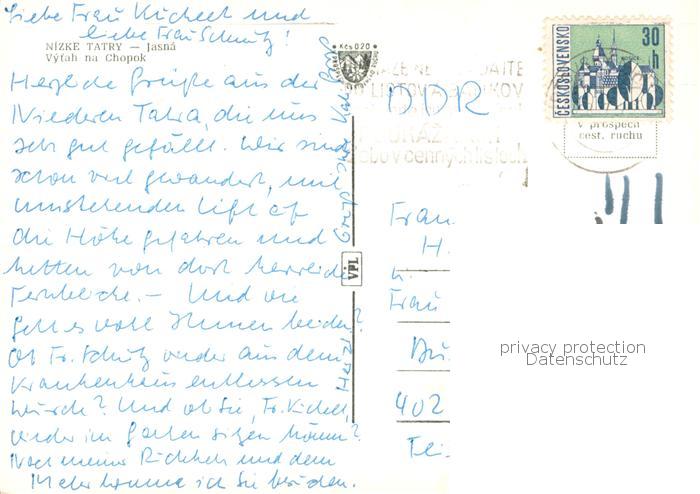 Liebe Frau Küchert und
liebe Frau Schütz!
NÍZKE TATRY — Jasná
Výťah na Chopok
Herzliche Grüße aus der
Niederen Tatra, die uns
sehr gut gefällt. Wir sind
schon viel gewandert, mit
umstehenden Lift auf
die Höhe gefahren und
hatten von dort herrliche
Fernblicke. — Und wie
geht es wohl Ihnen beiden?
Ob Fr. Schütz wieder aus dem
Krankenhaus entlassen
wurde? Und ob Sie, Fr.
wieder im Garten sitzen können?
Nach meiner Rückkehr und dem
komme ich Sie besuchen.
Herzl. Grüße Ihre
Kčs 0,20
VPL
DDR
ČESKOSLOVENSKO
30 h
v prospech
cest. ruchu
v cenných listech
Frau
H.
u.
Frau
402
privacy protection
Datenschutz